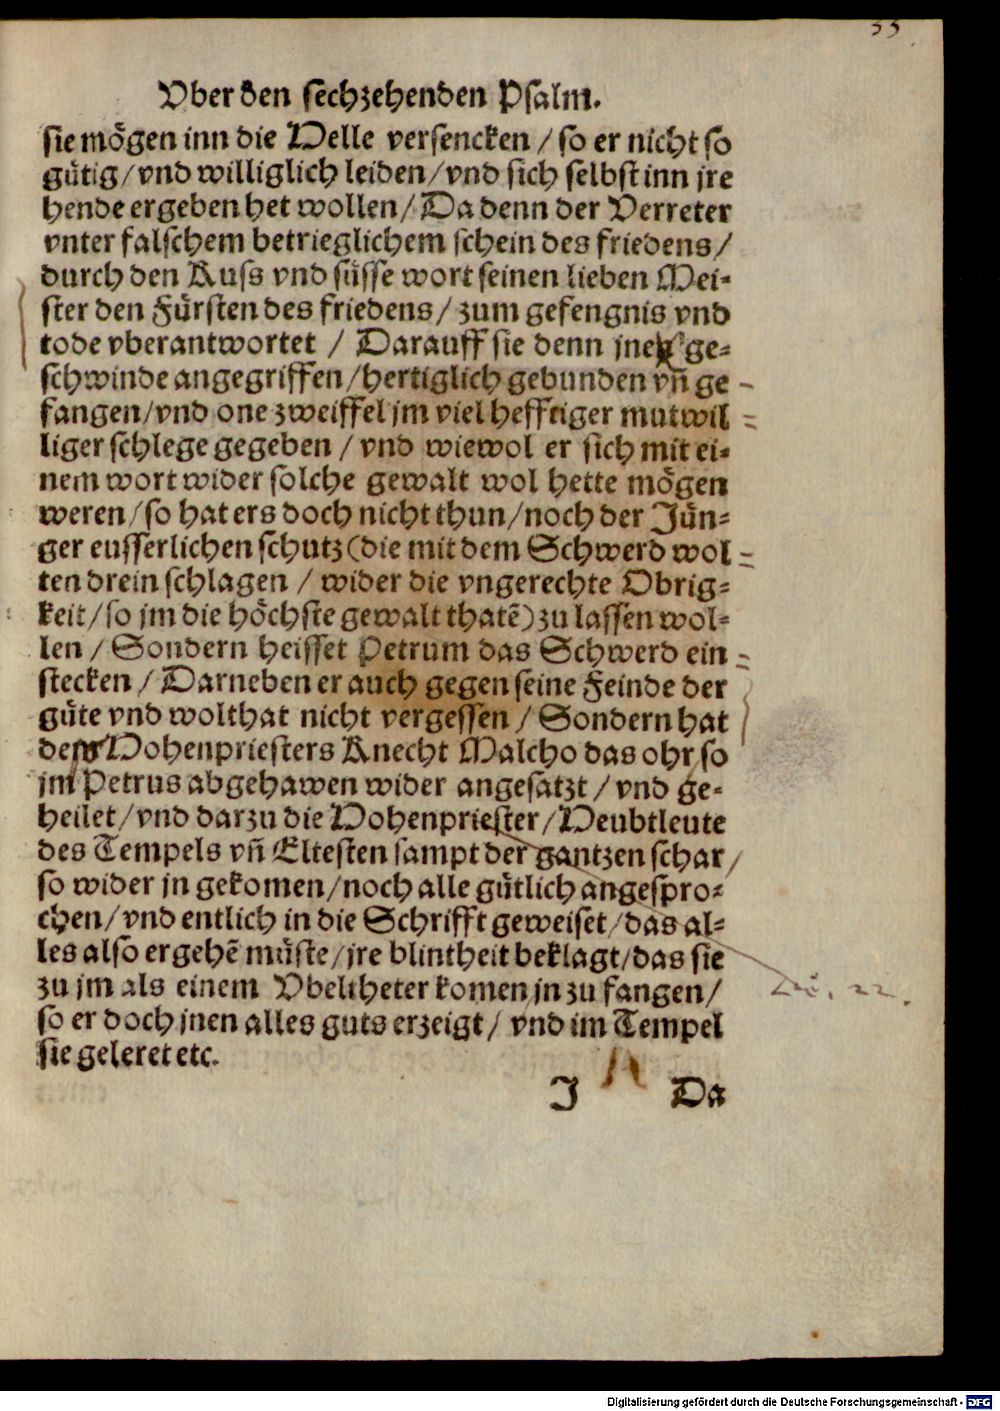 33
Vber den sechzehenden Psalm.
sie mögen inn die Helle versencken / so er nicht so
gütig / vnd williglich leiden / vnd sich selbst inn jre
hende ergeben het wollen / Da denn der Verreter
vnter falschem betrieglichem schein des friedens /
durch den Kuss vnd süsse wort seinen lieben Mei-
ster den Fürsten des friedens / zum gefengnis vnd
tode vberantwortet / Darauff sie denn jnen ge-
schwinde angegriffen / hertiglich gebunden vñ ge-
fangen / vnd one zweiffel jm viel hefftiger mutwil-
liger schlege gegeben / vnd wiewol er sich mit ei-
nem wort wider solche gewalt wol hette mögen
weren / so hat ers doch nicht thun / noch der Jün-
ger eusserlichen schutz (die mit dem Schwerd wol-
ten drein schlagen / wider die vngerechte Obrig-
keit / so jm die höchste gewalt thatẽ) zu lassen wol-
len / Sondern heisset Petrum das Schwerd ein-
stecken / Darneben er auch gegen seine Feinde der
güte vnd wolthat nicht vergessen / Sondern hat
Hohenpriesters Knecht Malcho das ohr so
jm Petrus abgehawen wider angesatzt / vnd ge-
heilet / vnd darzu die Hohenpriester / Heubtleute
des Tempels vñ Eltesten sampt der gantzen schar /
so wider jn gekomen / noch alle gütlich angespro-
chen / vnd entlich in die Schrifft geweiset / das al-
les also ergehẽ müste / jre blintheit beklagt / das sie
zu jm als einem Vbeltheter komen jn zu fangen /
so er doch jnen alles guts erzeigt / vnd im Tempel
sie geleret etc.
J Da
22.
Digitalisierung gefördert durch die Deutsche Forschungsgemeinschaft - DFG